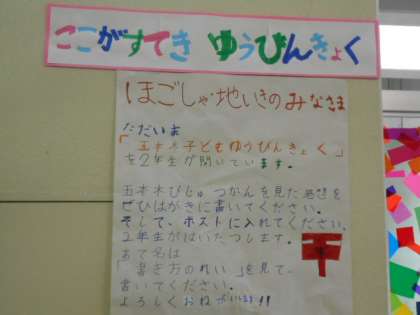 ここがすてき ゆうびんきょく
ほごしゃ・地いきのみなさま
ただいま
「五本木子どもゆうびんきょく」
を2年生が開いています。
五本木びじゅつかんを見た感想を
ぜひはがきに書いてください。
そして、ポストに入れてください。
2年生がはいたつします。
あて名は
「書き方のれい」を見て、
書いてください。
よろしくおねがいします!!